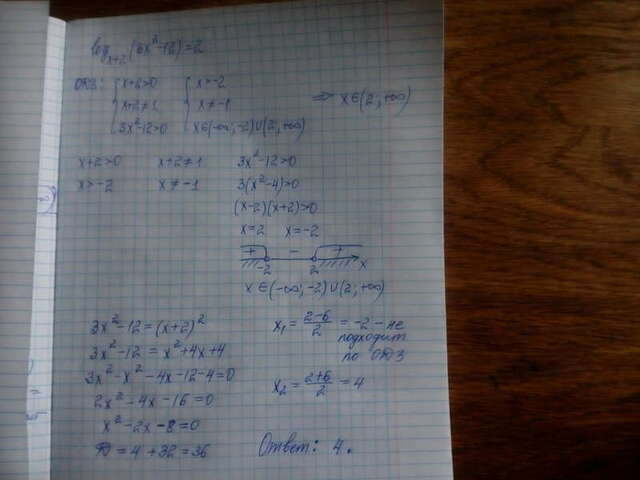 log x+2 (3x²-12)=2
ОДЗ: { x+2>0 { x>-2
x+2≠1 x≠-1 ⇒ x∈(2; +∞)
3x²-12>0 x∈(-∞; -2)∪(2; +∞)
x+2>0 x+2≠1 3x²-12>0
x>-2 x≠-1 3(x²-4)>0
(x-2)(x+2)>0
x=2 x=-2
+ - +
-2 2 x
x∈(-∞; -2)∪(2; +∞)
3x²-12=(x+2)²
3x²-12=x²+4x+4
3x²-x²-4x-12-4=0
2x²-4x-16=0
x²-2x-8=0
D=4+32=36
x₁=(2-6)/2=-2 - не
подходит
по ОДЗ
x₂=(2+6)/2=4
Ответ: 4.